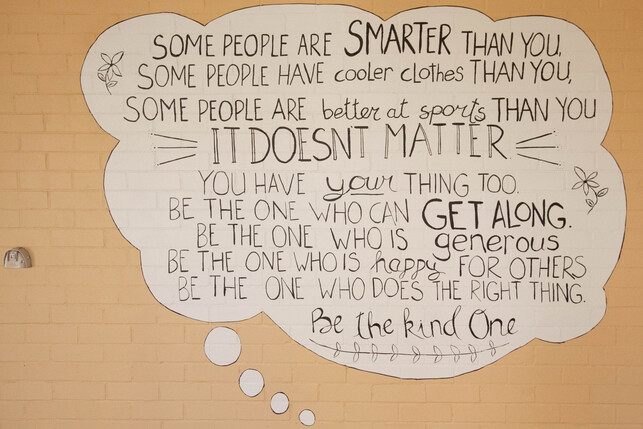 SOME PEOPLE ARE SMARTER THAN YOU,
SOME PEOPLE HAVE cooler clothes THAN YOU,
SOME PEOPLE ARE better at sports THAN YOU
IT DOESNT MATTER
YOU HAVE your THING TOO.
BE THE ONE WHO CAN GET ALONG.
BE THE ONE WHO IS generous
BE THE ONE WHO IS happy FOR OTHERS
BE THE ONE WHO DOES THE RIGHT THING.
Be the kind One